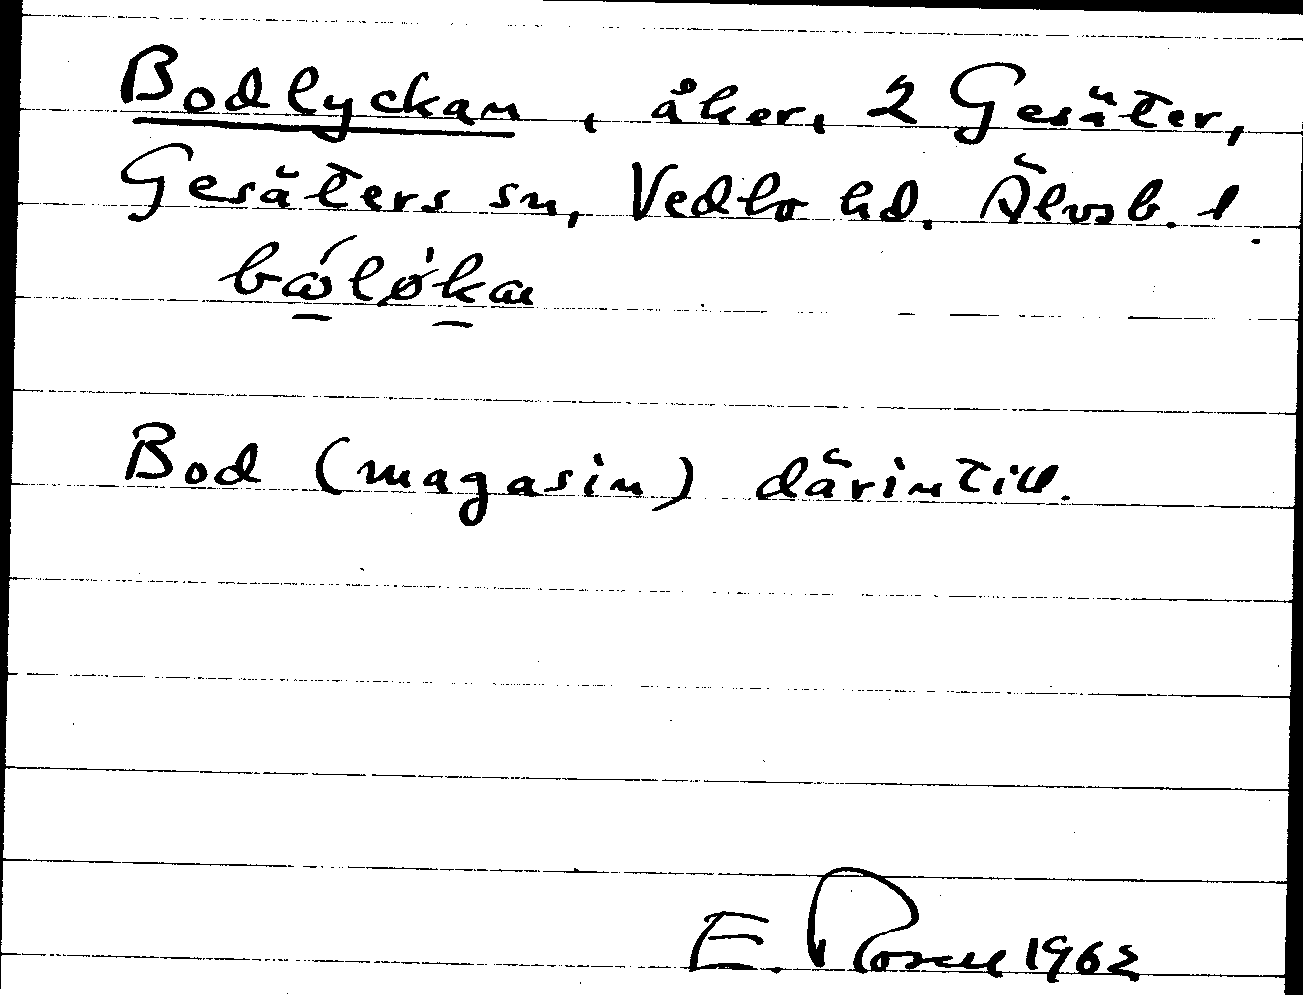 Bodlyckan, åker, 2 Gesäter,
Gesäters sn, Vedbo hd. Älvsb. l.
Bod (magasin) därintill.
E. Rosell 1962